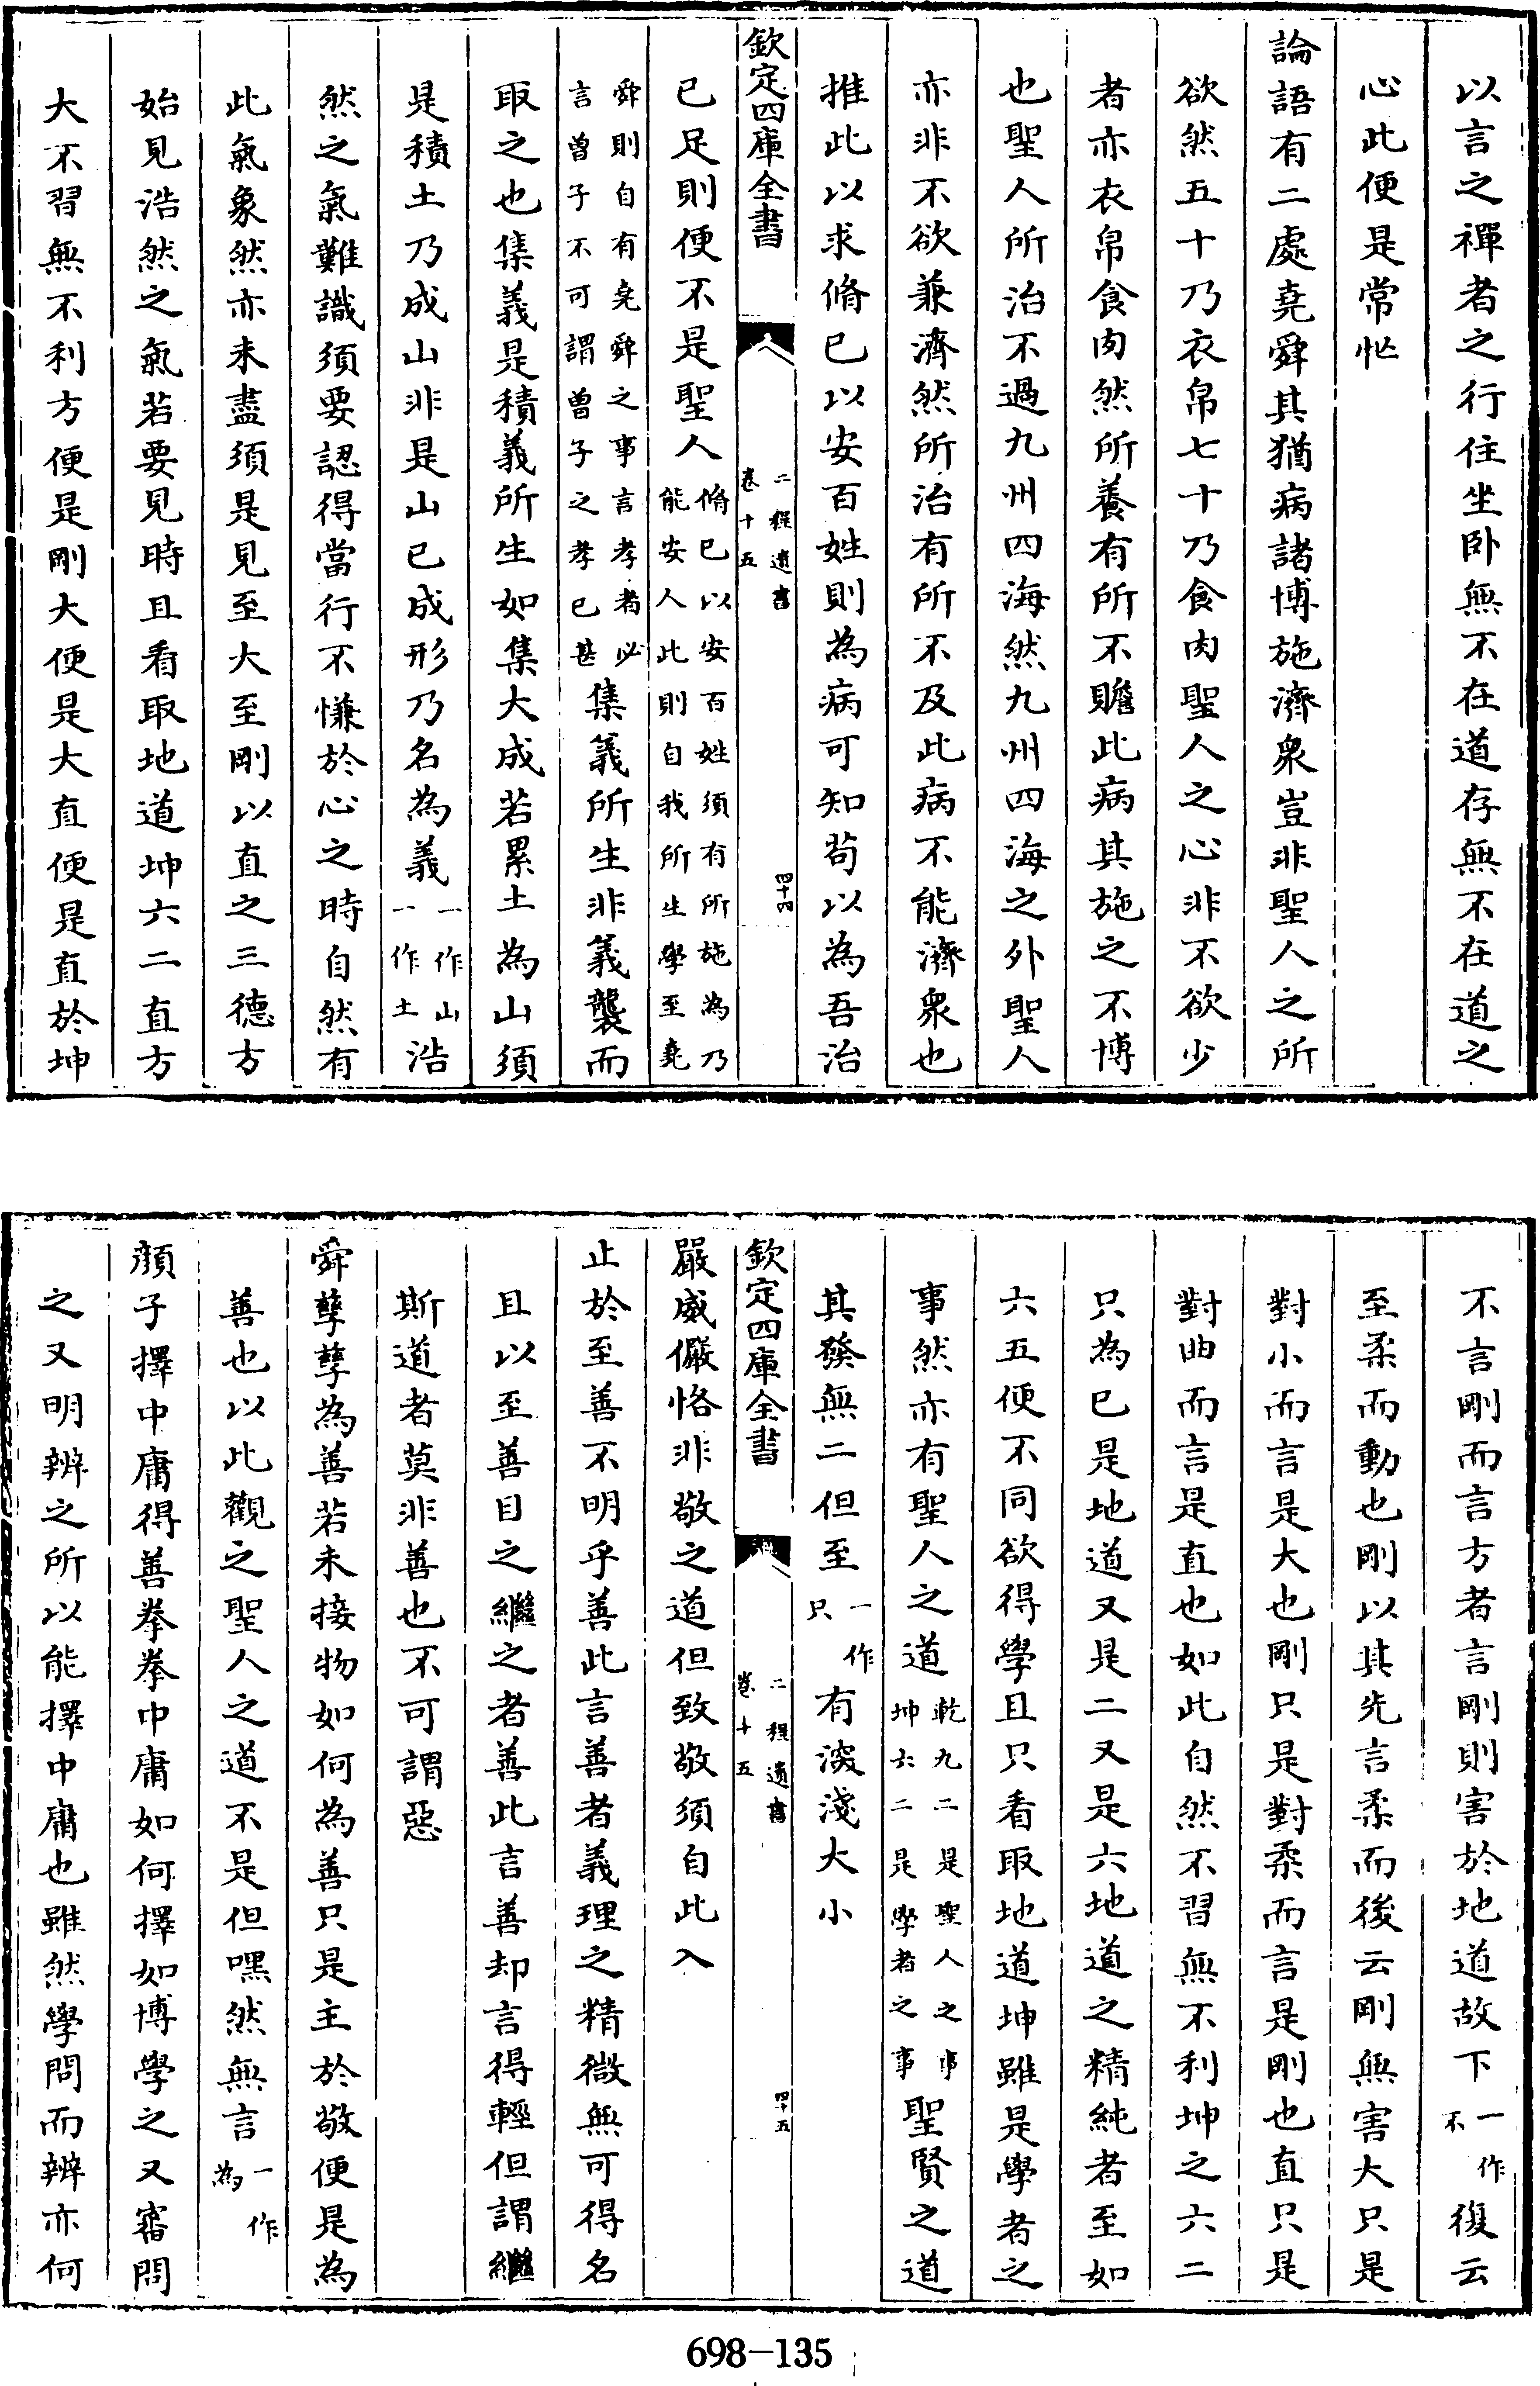 以言之禪者之行住坐卧無不在道存無不在道之
心此便是常忙
論語有二處堯舜其猶病諸博施濟衆豈非聖人之所
欲然五十乃衣帛七十乃食肉聖人之心非不欲少
者亦衣帛食肉然所養有所不贍此病其施之不博
也聖人所治不過九州四海然九州四海之外聖人
亦非不欲兼濟然所治有所不及此病不能濟衆也
推此以求脩已以安百姓則為病可知茍以為吾治
欽定四庫全書
二程遺書
卷十五
四十四
已足則便不是聖人脩已以安百姓須有所施為乃
能安人此則自我所生學至堯
舜則自有堯舜之事言孝者必
言曾子不可謂曾子之孝已甚集義所生非義襲而
取之也集義是積義所生如集大成若累土為山須
是積土乃成山非是山已成形乃名為義一作山
一作土浩
然之氣難識須要認得當行不慊於心之時自然有
此氣象然亦未盡須是見至大至剛以直之三德方
始見浩然之氣若要見時且看取地道坤六二直方
大不習無不利方便是剛大便是大直便是直於坤
不言剛而言方者言剛則害於地道故下一作
不復云
至柔而動也剛以其先言柔而後云剛無害大只是
對小而言是大也剛只是對柔而言是剛也直只是
對曲而言是直也如此自然不習無不利坤之六二
只為已是地道又是二又是六地道之精純者至如
六五便不同欲得學且只看取地道坤雖是學者之
事然亦有聖人之道乾九二是聖人之事
坤六二是學者之事聖賢之道
其發無二但至一作
只有深淺大小
欽定四庫全書
二程遺書
卷十五
四十五
嚴威儼恪非敬之道但致敬須自此入
止於至善不明乎善此言善者義理之精微無可得名
且以至善目之繼之者善此言善却言得輕但謂繼
斯道者莫非善也不可謂惡
舜孳孳為善若未接物如何為善只是主於敬便是為
善也以此觀之聖人之道不是但嘿然無言一作
為
顔子擇中庸得善拳拳中庸如何擇如博學之又審問
之又明辨之所以能擇中庸也雖然學問而辨亦何
698-135